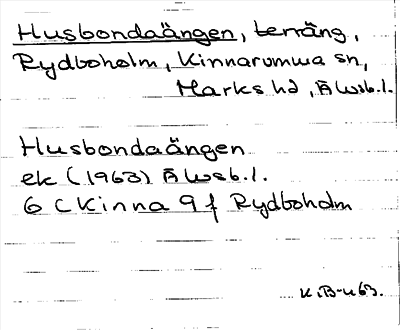 Husbondaängen, terräng,
Rydboholm, Kinnarumma sn,
Marks hd, Älvsb.l.
Husbondaängen
ek (1963) Älvsb.l.
6 C Kinna 9 f Rydboholm
K.B-u 63.